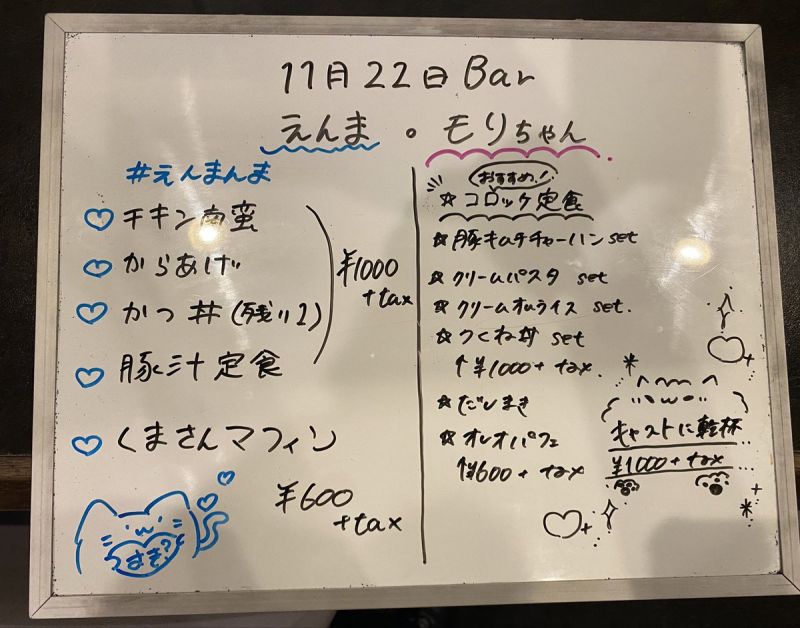 11月22日 Bar
えんま 。 もりちゃん
#えんまんま
♡ チキン南蛮
♡ からあげ
♡ かつ丼 (残り2)
♡ 豚汁定食
¥1000
+tax
♡ くまさんマフィン
¥600
+tax
すき?
おすすめ!
☆ コロッケ定食
☆ 豚キムチチャーハン set
☆ クリームパスタ set
☆ クリームオムライス set.
☆ つくね丼 set
↑ ¥1000 + tax.
☆ だしまき
☆ オレオパフェ
↑¥600 + tax
キャストに乾杯
¥1000 + tax